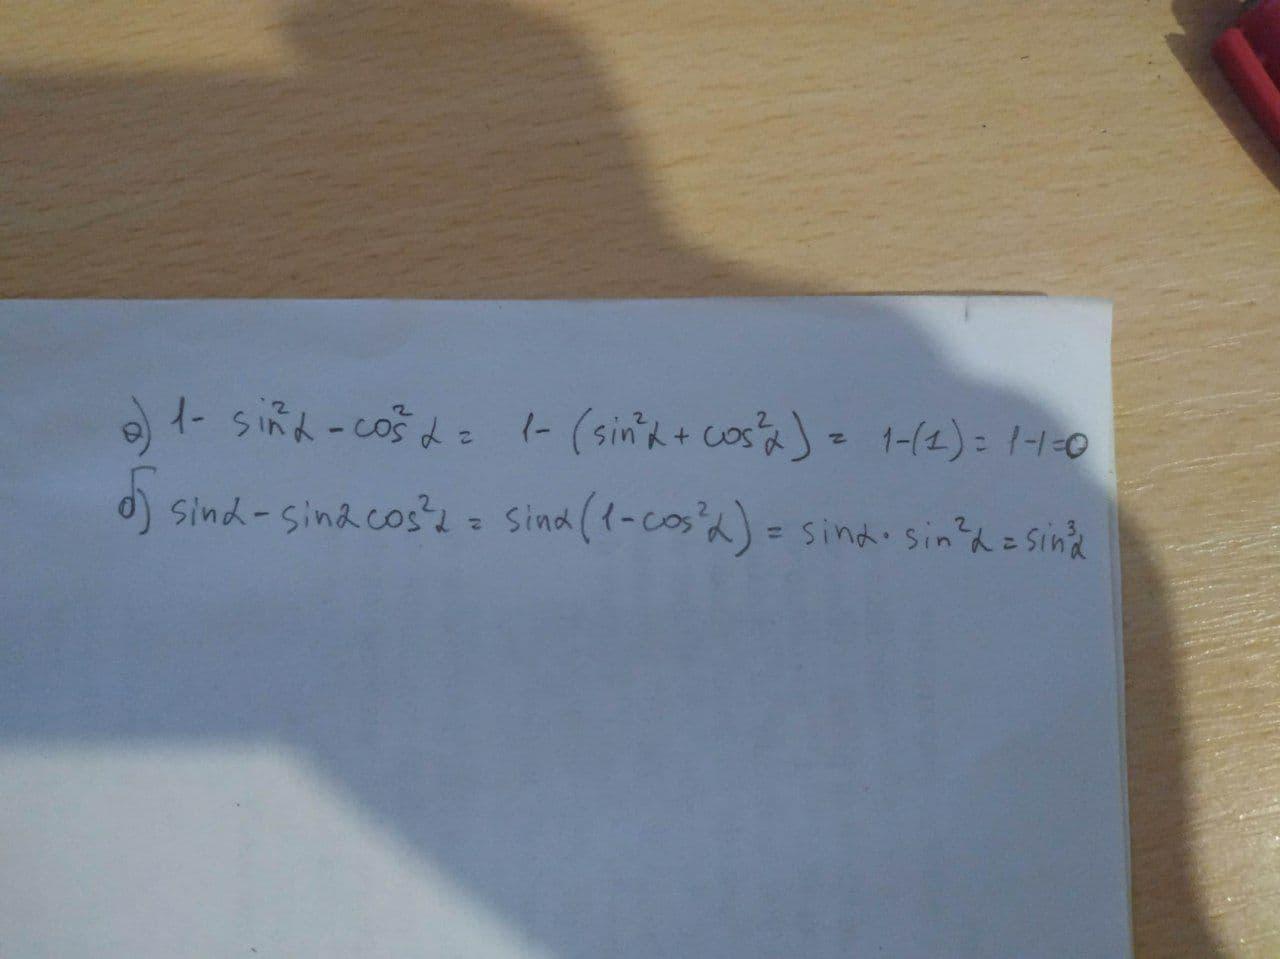 а) 1- sin²α - cos²α = 1- (sin²α + cos²α) = 1-(1) = 1-1=0
б) sinα - sinα cos²α = sinα (1-cos²α) = sinα · sin²α = sin³α